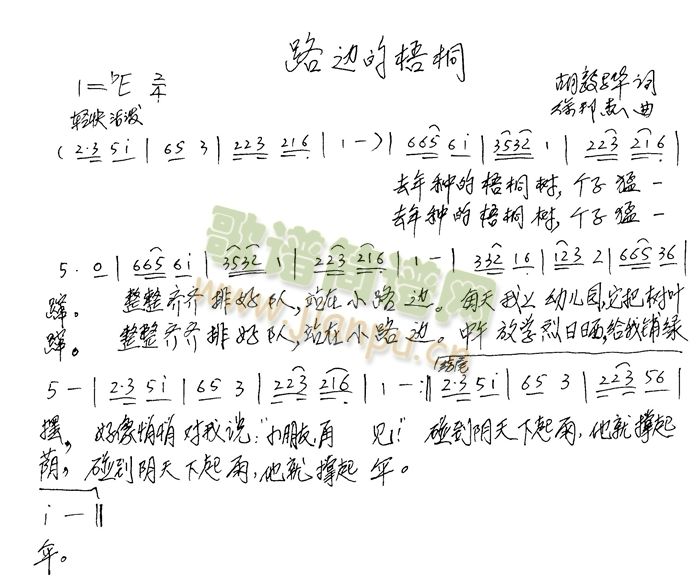 路边的梧桐
1=♭E 2/4
胡敦骅 词
轻快 活泼
徐邦杰 曲
(2·3 5i | 65 3 | 223 216 | 1 -) | 665 6i | 3532 1 | 223 216 |
去年种的梧桐树, 个子猛一
去年种的梧桐树, 个子猛一
5·0 | 665 6i | 3532 1 | 223 216 | 1 - | 332 16 | 123 2 | 665 36 |
蹿。 整整齐齐排好队, 站在小路边。 每天我上幼儿园, 它把树叶
蹿。 整整齐齐排好队, 站在小路边。 中午放学烈日晒, 给我铺绿
结尾
5 - | 2·3 5i | 65 3 | 223 216 | 1 - :|| 2·3 5i | 65 3 | 223 56 |
摆, 好像悄悄对我说:"小朋友再见!" 碰到阴天下起雨, 他就撑起
荫, 碰到阴天下起雨, 他就撑起伞。
i - ||
伞。
歌谱简谱网
www.jianpu.cn